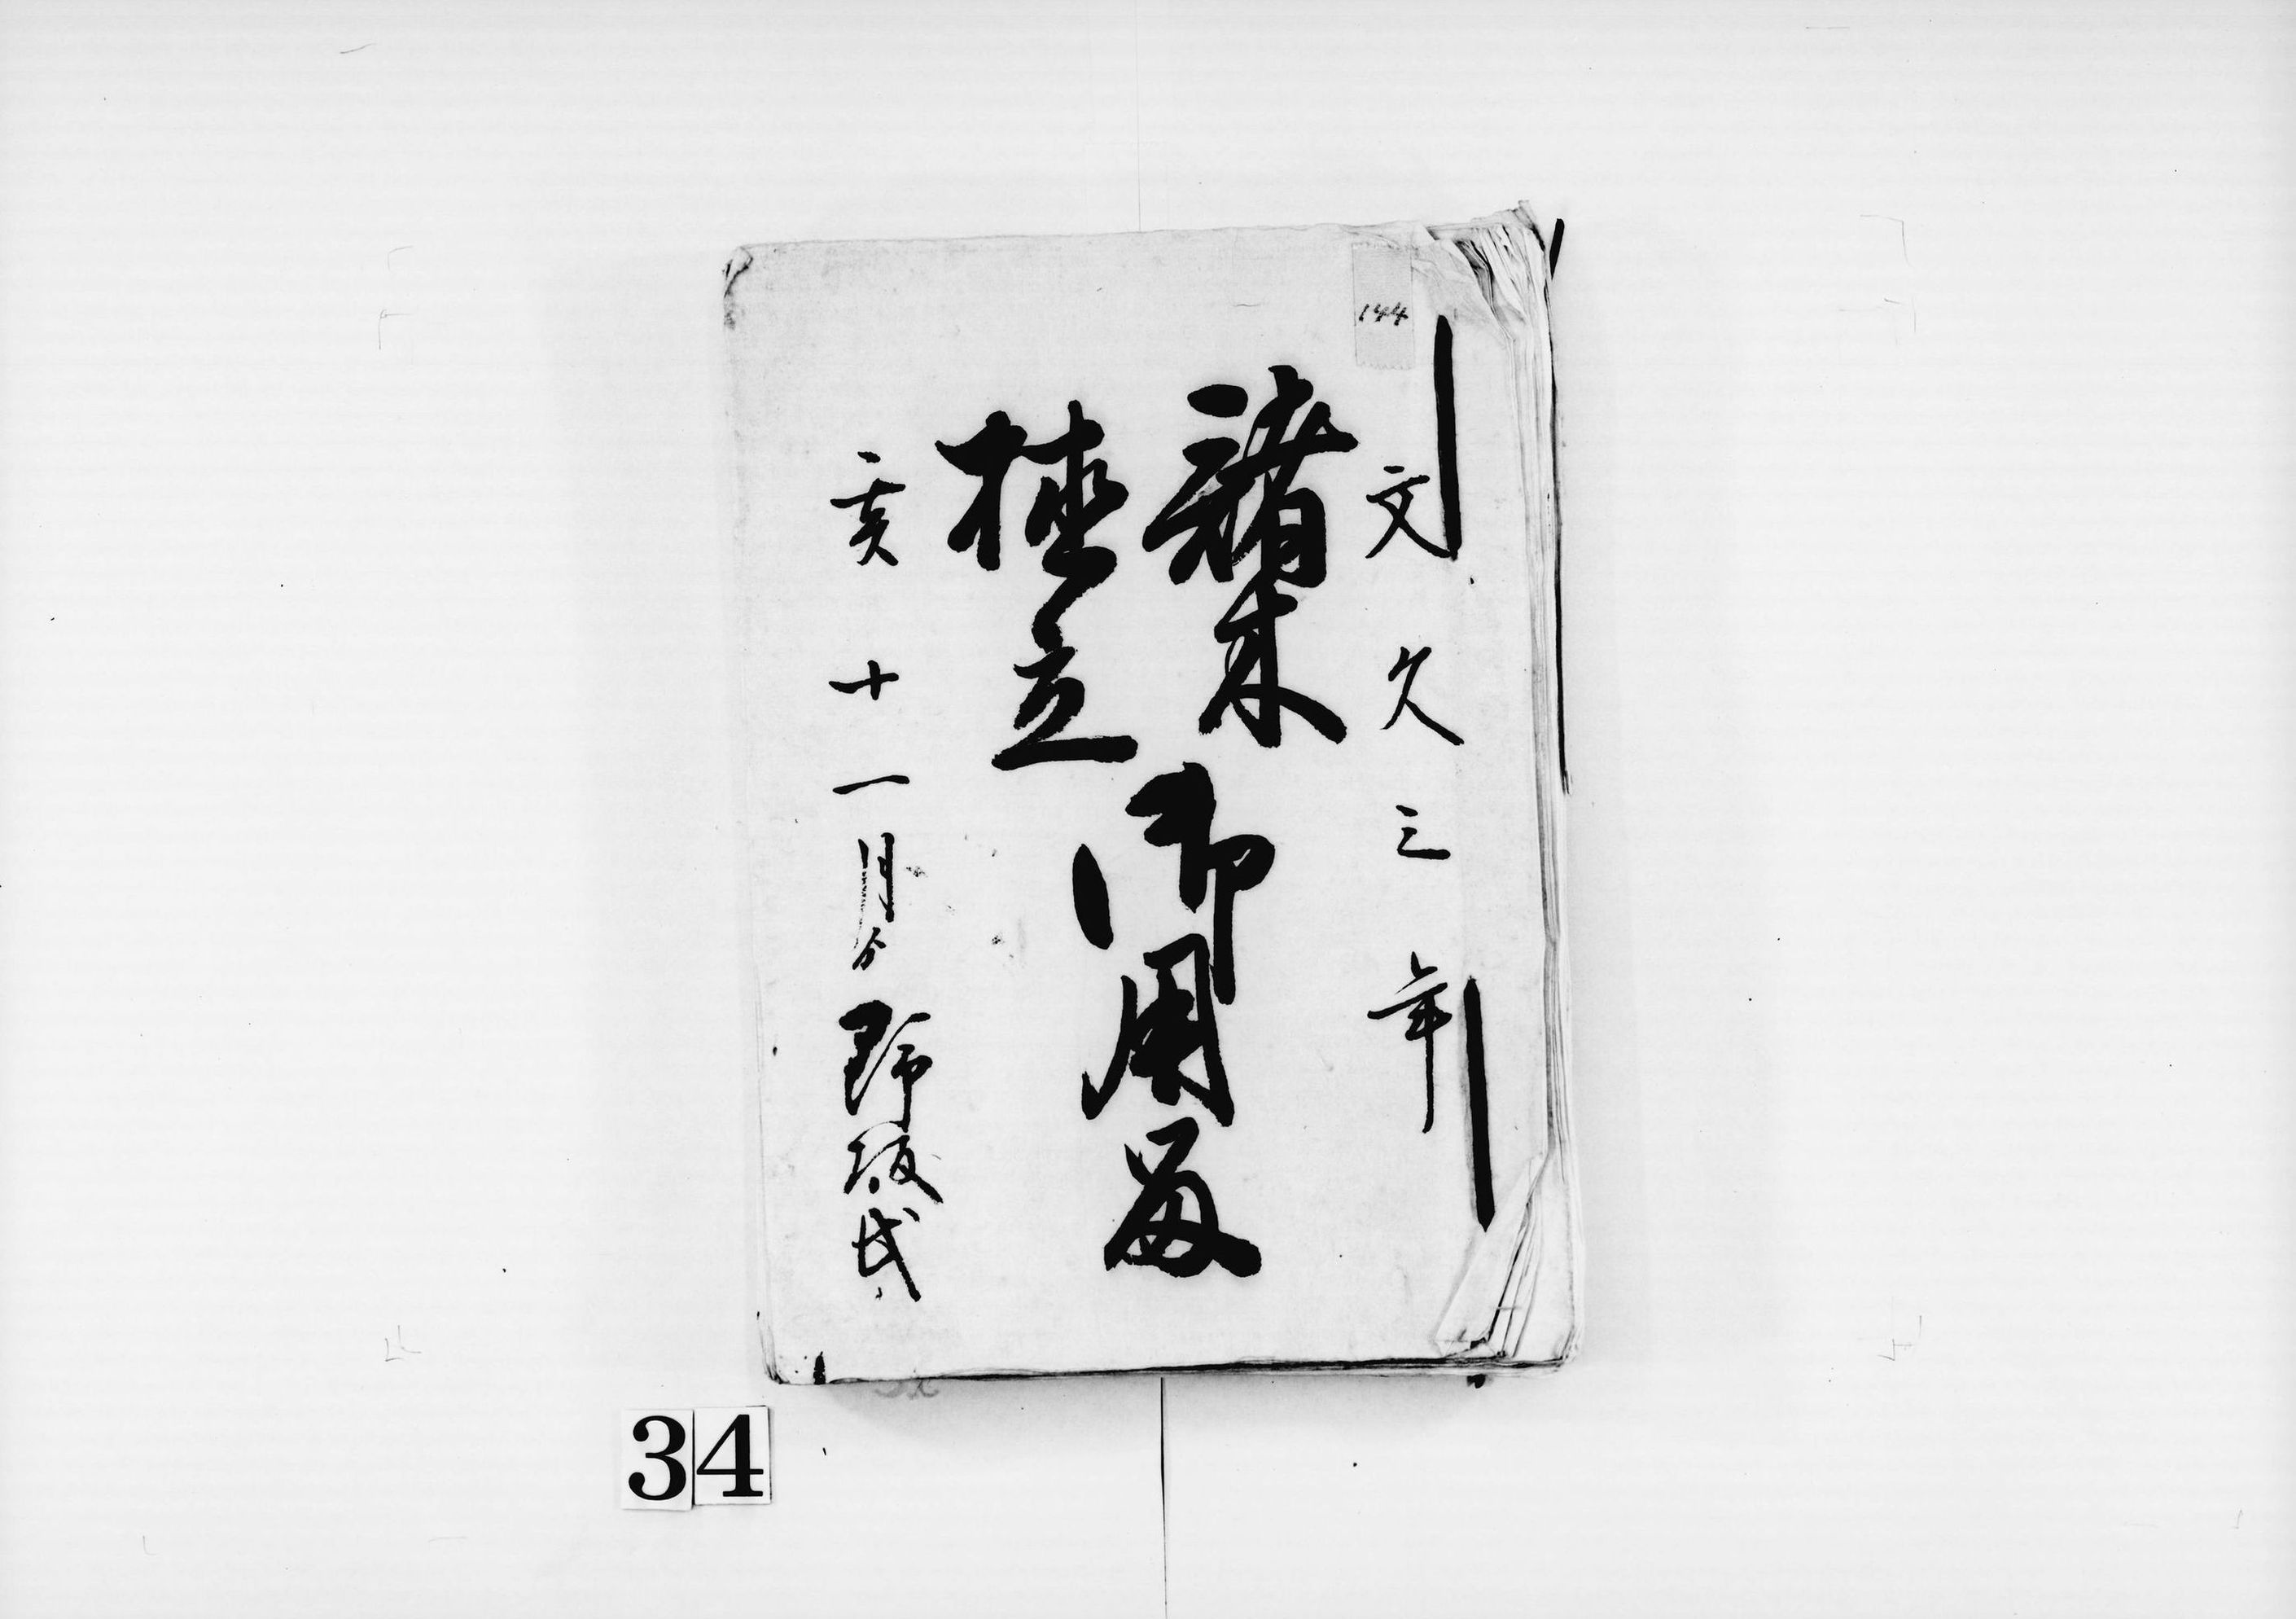 144
文久三年
諸木
植立
御用留
亥十一月
野坂氏
34